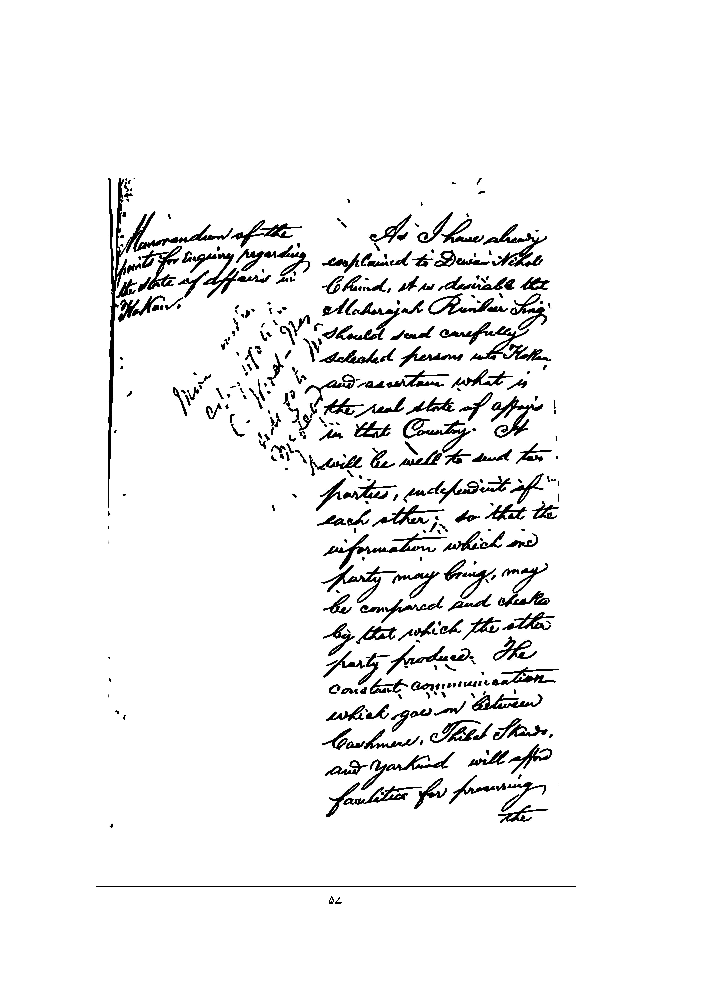 Memorandum of the
points for Enquiry regarding
the state of affairs in
Kokan.
As I have already
explained to Dewan Nihal
Chund, it is desirable that
Maharajah Runbeer Sing
should send carefully
selected persons into Kokan
and ascertain what is
the real state of affairs
in that Country. It
will be well to send two
parties, independent of
each other; so that the
information which one
party may bring, may
be compared and checked
by that which the other
party produce. The
constant communication
which goes on between
Cashmere, Thibet
and Yarkund will afford
facilities for procuring
the